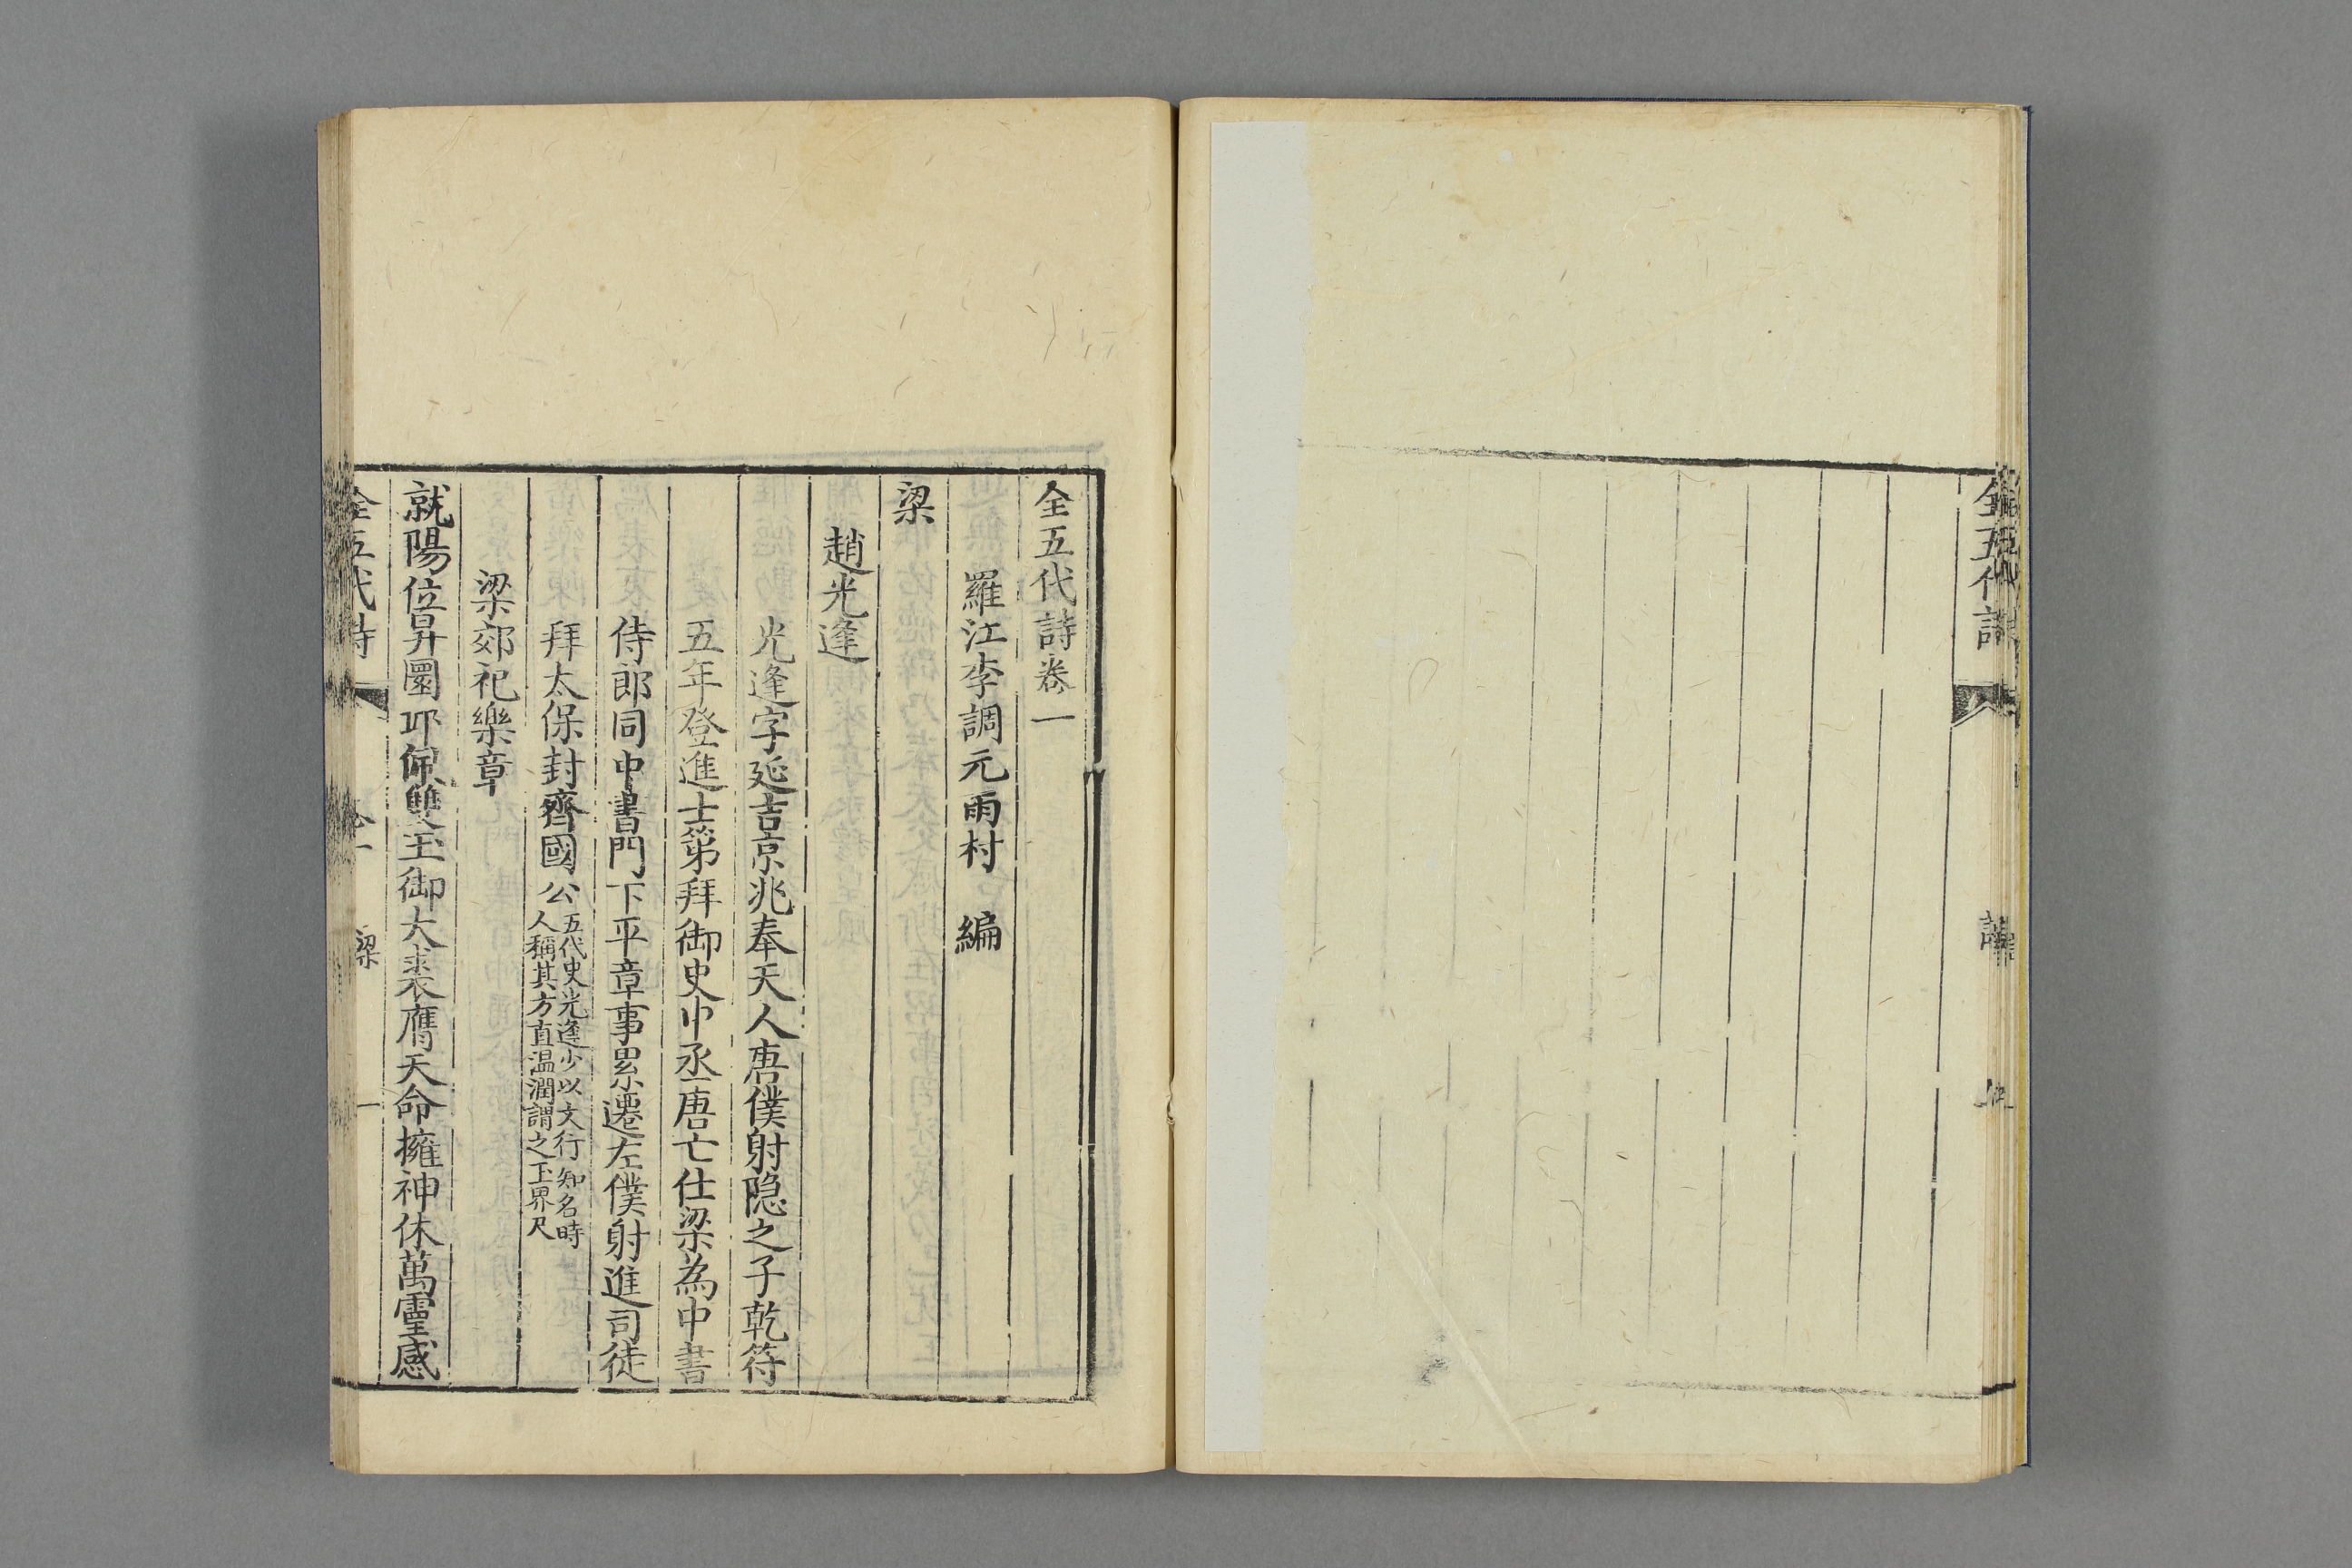 全五代詩
全五代詩卷一
羅江李調元雨村　編
梁
趙光逢
光逢字延吉京兆奉天人唐僕射隱之子乾符
五年登進士第拜御史中丞唐亡仕梁為中書
侍郎同中書門下平章事累遷左僕射進司徒
拜太保封齊國公
五代史光逢少以文行知名時
人稱其方直温潤謂之玉界尺
梁郊祀樂章
就陽位昇圜邱佩雙玉御大裘膺天命擁神休萬靈感
全五代詩
梁
一